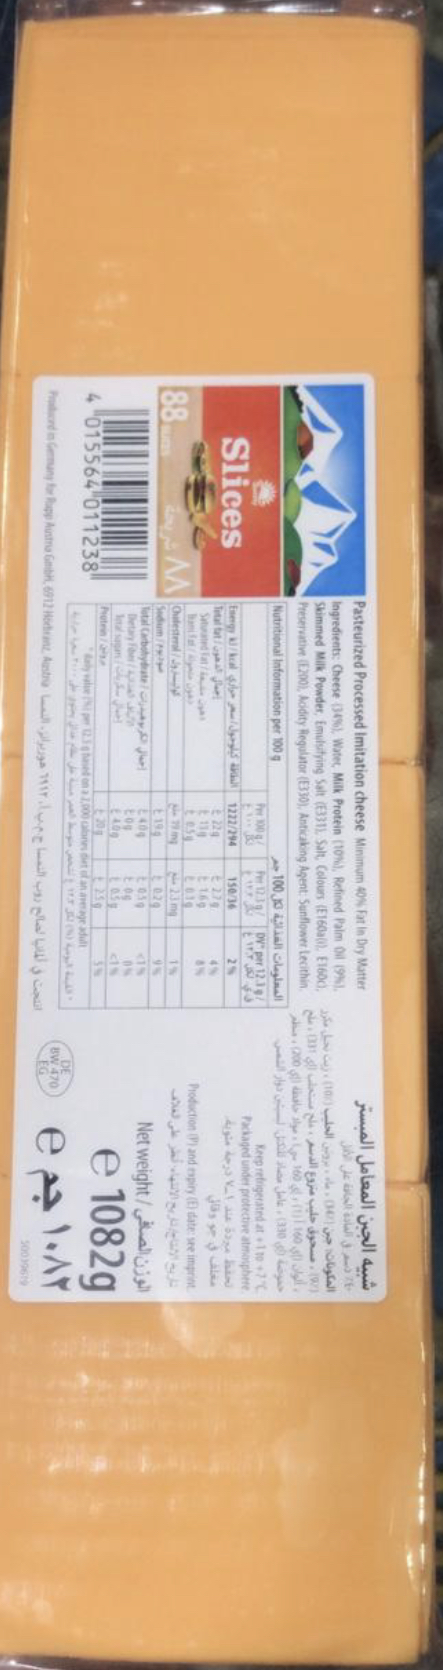 Slices
88 SLICES ٨٨ شريحة
4 015564 011238
Pasteurized Processed Imitation cheese Minimum 40% Fat In Dry Matter
Ingredients: Cheese (34%), Water, Milk Protein (10%), Refined Palm Oil (9%),
Skimmed Milk Powder, Emulsifying Salt (E331), Salt, Colours (E160a(i), E160c),
Preservative (E200), Acidity Regulator (E330), Anticaking Agent: Sunflower Lecithin.
Nutritional Information per 100 g المعلومات الغذائية لكل 100 جم
Per 100 g / Per 12.3 g / DV* per 12.3 g /
Energy kJ / kcal 1222/294 150/36 2%
Total fat / إجمالي الدهون 22 g 2.7 g 4%
Saturated Fat / دهون مشبعة 13 g 1.6 g 8%
Trans Fat / 0.5 g 0.1 g
Cholesterol / كوليسترول 19 mg 2.3 mg 1%
Sodium / صوديوم 1.9 g 0.2 g 9%
Total Carbohydrate / إجمالي الكربوهيدرات 4.0 g 0.5 g <1%
Dietary Fiber / 0 g 0 g 0%
Total sugars / إجمالي سكريات 4.0 g 0.5 g <1%
Protein / بروتين 20 g 2.5 g 5%
*daily value (%) per 12.3 g based on a 2,000 calories diet of an average adult
Produced in Germany for Rupp Austria GmbH, 6912 Hörbranz, Austria
شبيه الجبن المعامل المبستر
Keep refrigerated at +1 to +7 °C
Packaged under protective atmosphere
Production (P) and expiry (E) date: see imprint.
Net weight / الوزن الصافي
e 1082g
e ١٠٨٢ جم
DE
BW 470
EG
50039679